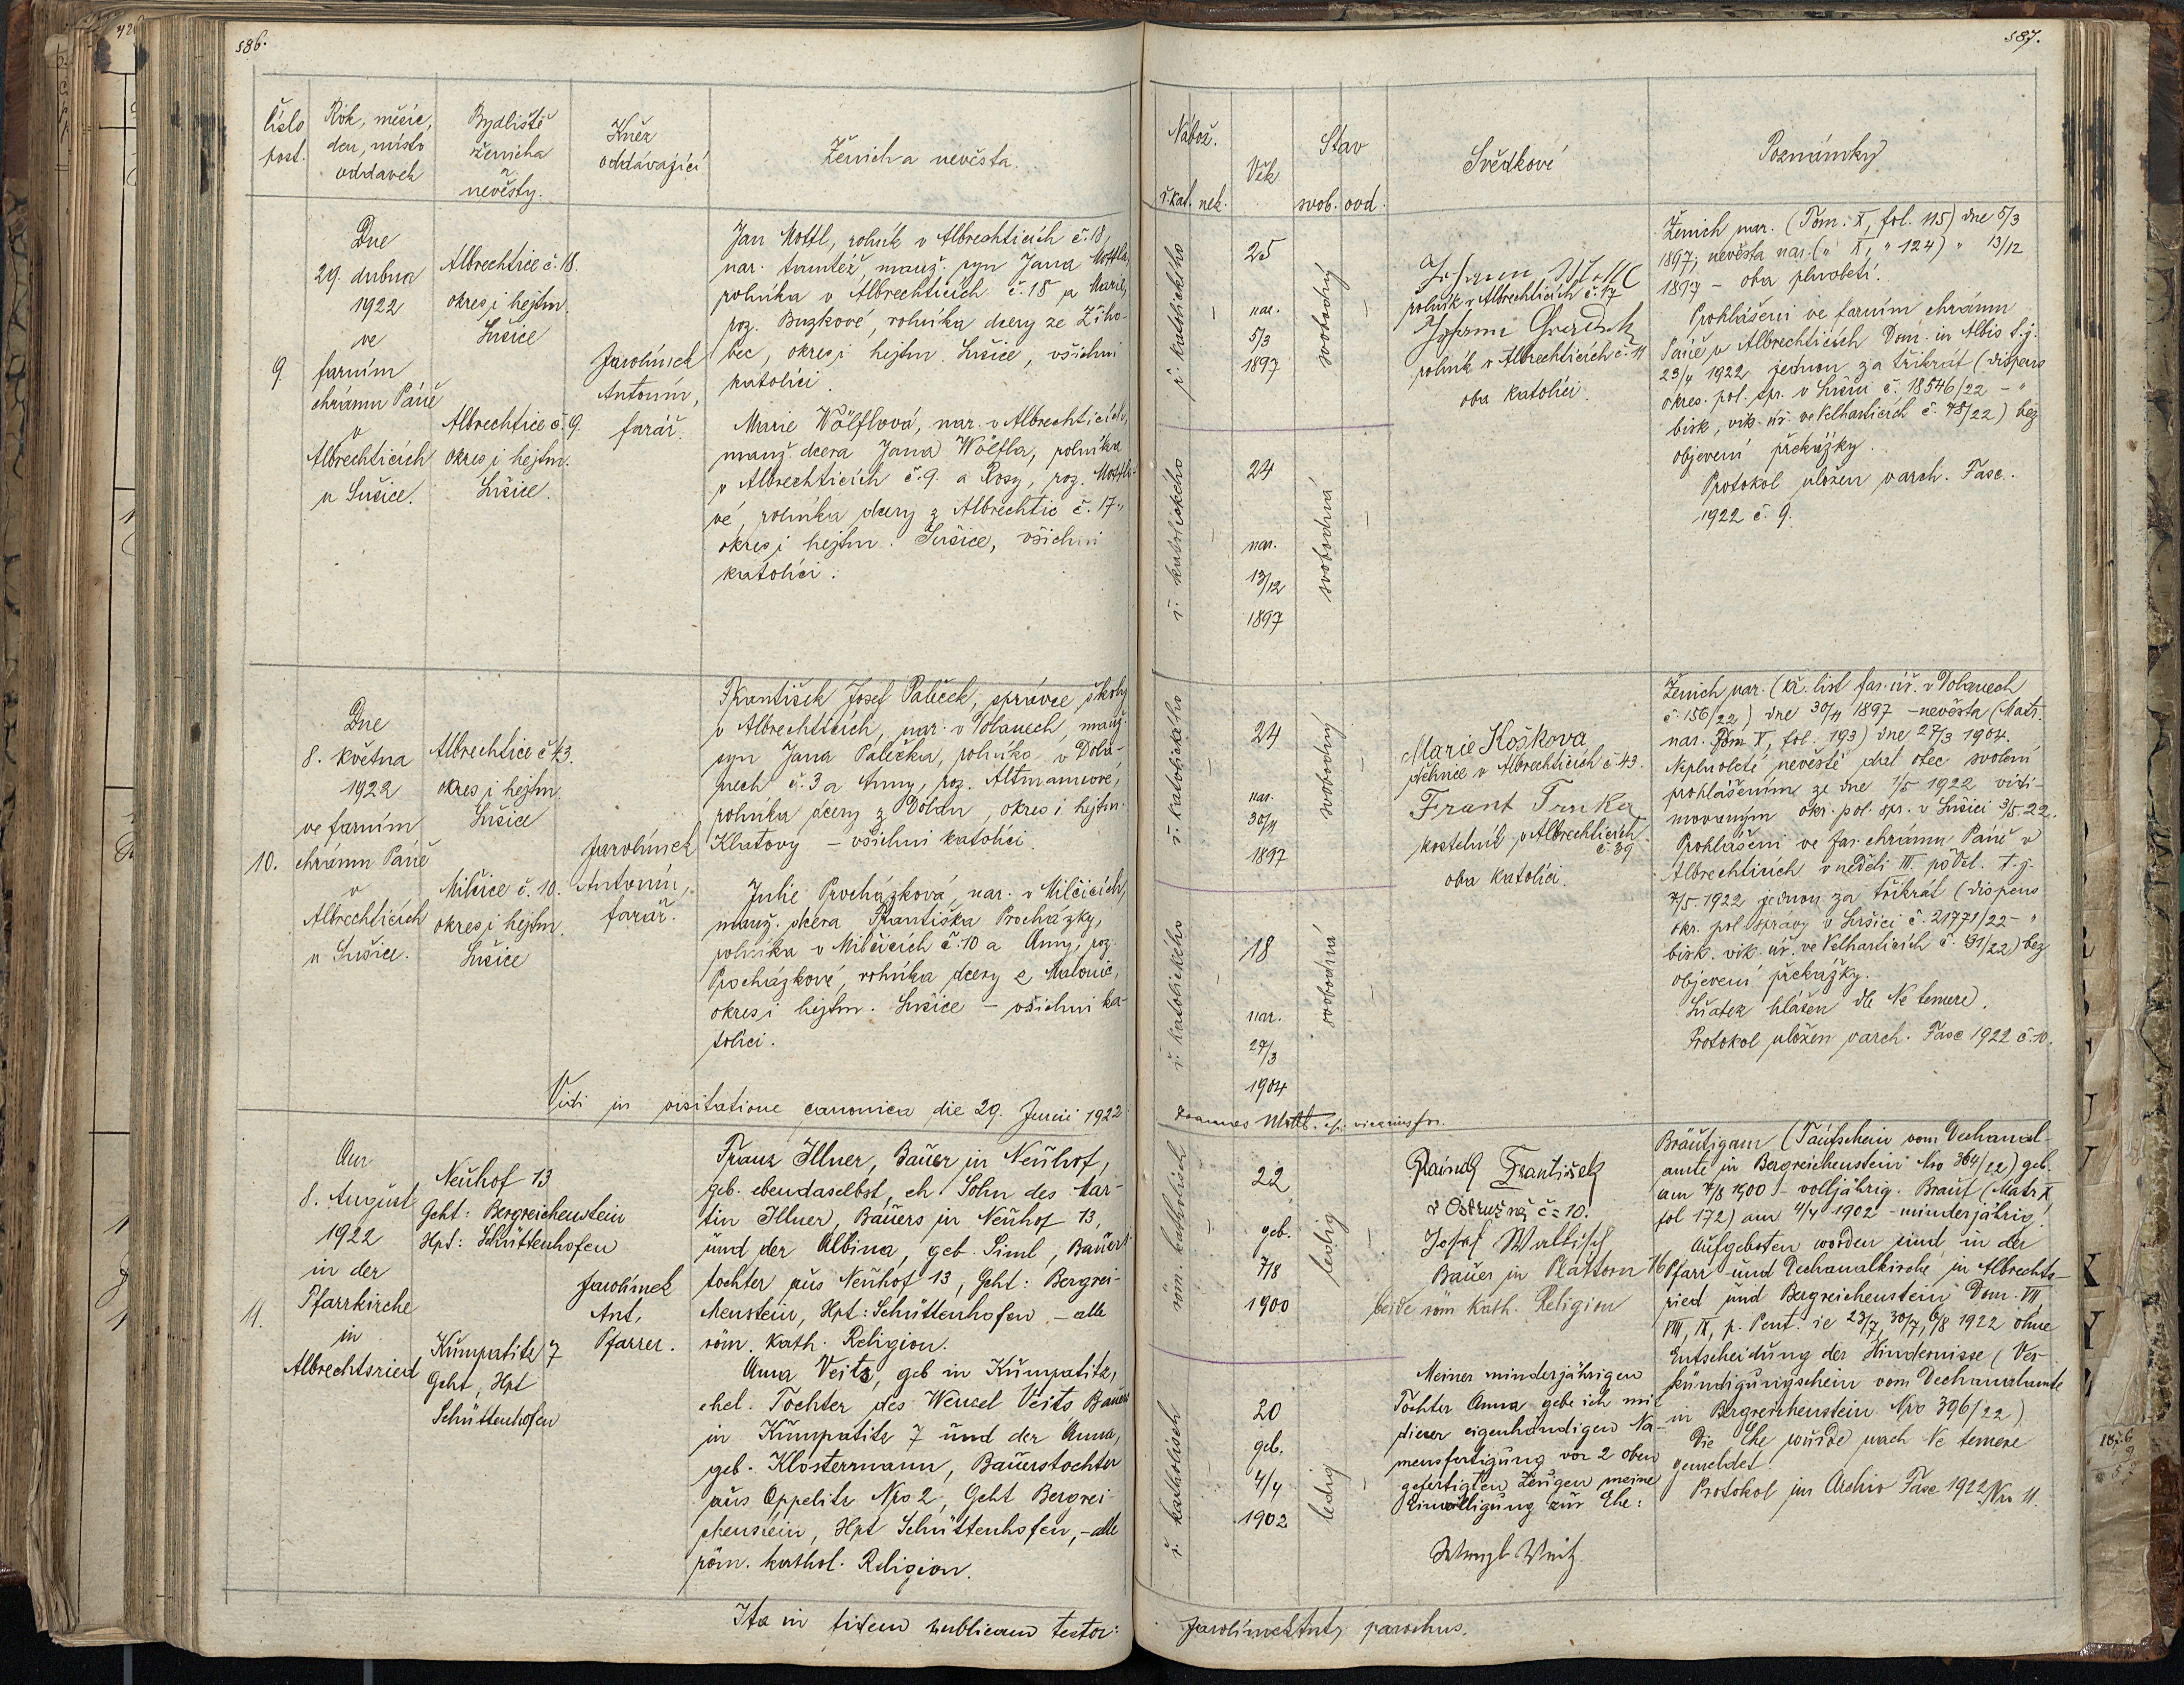 586.
Číslo
post.
Rok, měsíc,
den, místo
oddavek
Bydliště
ženicha
a
nevěsty.
Kněz
oddávající
Ženich a nevěsta.
9.
Dne
29. dubna
1922
ve
farním
chrámu Páně
v
Albrechticích
u Sušice.
Albrechtice č. 18.
okres i hejtm.
Sušice
Albrechtice č. 9.
okres i hejtm.
Sušice.
Jarolímek
Antonín,
farář.
Jan Mottl, rolník v Albrechticích č. 18,
nar. tamtéž, manž. syn Jana Mottla,
rolníka v Albrechticích č. 18 a Marie,
roz. Buzkové, rolníka dcery ze Žiho-
bec, okres i hejtm. Sušice, všichni
katolíci.
Marie Wölflová, nar. v Albrechticích,
manž. dcera Jana Wölfla, rolníka
v Albrechticích č. 9. a Rosy, roz. Mottlo-
vé, rolníka dcery z Albrechtic č. 17.,
okres i hejtm. Sušice, všichni
katolíci.
10.
Dne
8. května
1922
ve farním
chrámu Páně
v
Albrechticích
u Sušice.
Albrechtice č 43.
okres i hejtm.
Sušice
Milčice č. 10.
okres i hejtm.
Sušice
Jarolímek
Antonín,
farář.
František Josef Paleček, správce školy
v Albrechticích, nar. v Dolanech, manž.
syn Jana Palečka, rolníka v Dola-
nech č. 3 a Anny, roz. Altmannové,
rolníka dcery z Dolan, okres i hejtm.
Klatovy – všichni katolíci.
Julie Procházková, nar. v Milčicích,
manž. dcera Františka Procházky,
rolníka v Milčicích č. 10 a Anny, roz.
Procházkové, rolníka dcery z Malonic,
okres i hejtm. Sušice – všichni ka-
tolíci.
Vidi in visitatione canonica die 29. Junii 1922
11.
Am
8. August
1922
in der
Pfarrkirche
in
Albrechtsried
Neuhof 13
Geht: Bergreichenstein
Hpt: Schüttenhofen
Kumpatitz 7
Geht, Hpt
Schüttenhofen
Jarolímek
Ant,
Pfarrer.
Franz Illner, Bauer in Neuhof,
geb. ebendaselbst, eh. Sohn des Mar-
tin Illner, Bauers in Neuhof 13,
und der Albina, geb. Siml, Bauers
tochter aus Neuhof 13, Geht: Bergrei-
chenstein, Hpt: Schüttenhofen – alle
röm. kath. Religion.
Anna Veits, geb in Kumpatitz,
ehel. Tochter des Wenzel Veits Bauers
in Kumpatitz 7 und der Anna,
geb. Klostermann, Bauerstochter
aus Oppelitz Nro 2, Geht Bergrei-
chenstein, Hpt Schüttenhofen, – alle
röm. kathol. Religion.
Ita in fidem publicam testor:
587.
Nábož.
ř. kat. nek.
Věk
Stav
svob. ovd.
Svědkové
Poznámky
ř. katolického
25
nar.
5/3
1897
svobodný
ř. katolického
24
nar.
13/12
1897
svobodná
Johann Mottl
rolník v Albrechticích č. 17
Johann
rolník v Albrechticích č. 11
oba katolíci.
Ženich nar. (Tom. X, fol. 115) dne 5/3
1897; nevěsta nar. („ X, „ 124) „ 13/12
1897 – oba plnoletí.
Prohlášeni ve farním chrámu
Páně v Albrechticích Dom. in Albis t. j.
23/4 1922 jednou za třikrát (dispens
okres. pol. spr. v Sušici č. 18546/22 – „
bisk. vik. úř. ve Velharticích č. 78/22) bez
objevení překážky.
Protokol uložen v arch. Fasc.
1922 č. 9.
ř. katolického
24
nar.
30/11
1897
svobodný
ř. katolického
18
nar.
27/3
1904
svobodná
Marie Košková
dělnice v Albrechticích č 43.
Frant Trnka
kostelník v Albrechticích
č. 39
oba katolíci.
Ženich nar. (kř. list far. úř. v Dolanech
č. 156/22) dne 30/11 1897 – nevěsta (Matr.
nar. Tom X, fol. 193) dne 27/3 1904.
Neplnoleté nevěstě dal otec svolení
prohlášením ze dne 1/5 1922 vidi-
movaným okr. pol. spr. v Sušici 3/5 22.
Prohlášeni ve far. chrámu Páně v
Albrechticích v neděli III. po Vel. t. j.
7/5. 1922 jednou za třikrát (dispens
okr. pol. správy v Sušici č. 21771/22 – „
bisk. vik. úř. ve Velharticích č. 91/22) bez
objevení překážky.
Sňatek hlášen dle Ne temere.
Protokol uložen v arch. Fasc 1922 č. 10.
Joannes Mottl. vicarius for.
röm. katholisch
22
geb.
7/8
1900
ledig
r. katholisch
20
geb.
4/4
1902
ledig
František
z Ostružna č= 10.
Josef Wallisch
Bauer in Plattorn 16
beide röm kath. Religion
Meiner minderjährigen
Tochter Anna gebe ich mit
dieser eigenhändigen Na-
mensfertigung vor 2 oben
gefertigten Zeugen meine
Einwilligung zur Ehe:
Wenzl Veitz
Bräutigam (Taufschein vom Dechanal-
amte in Bergreichenstein Nro 364/22) geb.
am 7/8 1900 – volljährig. Braut (Matr X
fol 172) am 4/4 1902 – minderjährig.
Aufgeboten worden sind in der
Pfarr- und Dechanalkirche in Albrechts-
ried und Bergreichenstein Dom. VII
VIII, IX, p. Pent. ie 23/7, 30/7, 6/8 1922 ohne
Entscheidung der Hindernisse (Ver-
kündigungschein vom Dechanalamte
in Bergreichenstein Nro 396/22)
Die Ehe wurde nach Ne temere
gemeldet
Protokol im Archiv Fasc 1922 Nro 11.
Jarolímek Ant, parochus.